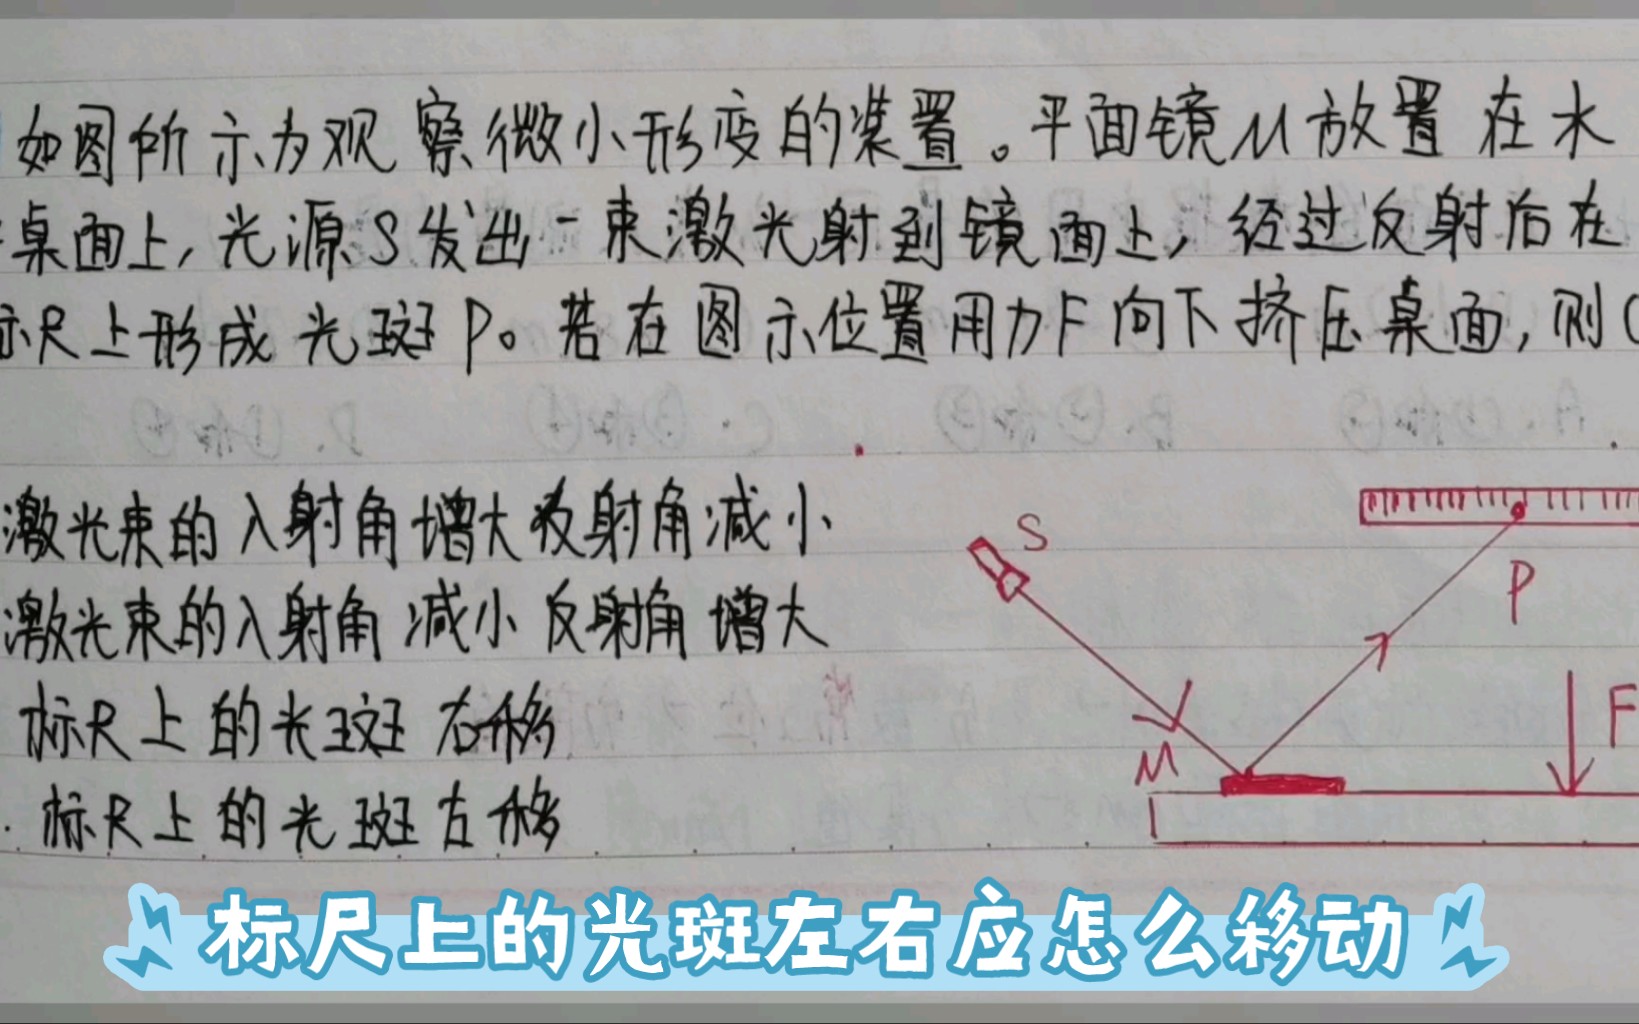 如图所示为观察微小形变的装置。平面镜M放置在水
桌面上,光源S发出一束激光射到镜面上,经过反射后在
标尺上形成光斑P。若在图示位置用力F向下挤压桌面,则(
激光束的入射角增大反射角减小
激光束的入射角减小反射角增大
标尺上的光斑右移
标尺上的光斑左移
S
P
F
M
标尺上的光斑左右应怎么移动